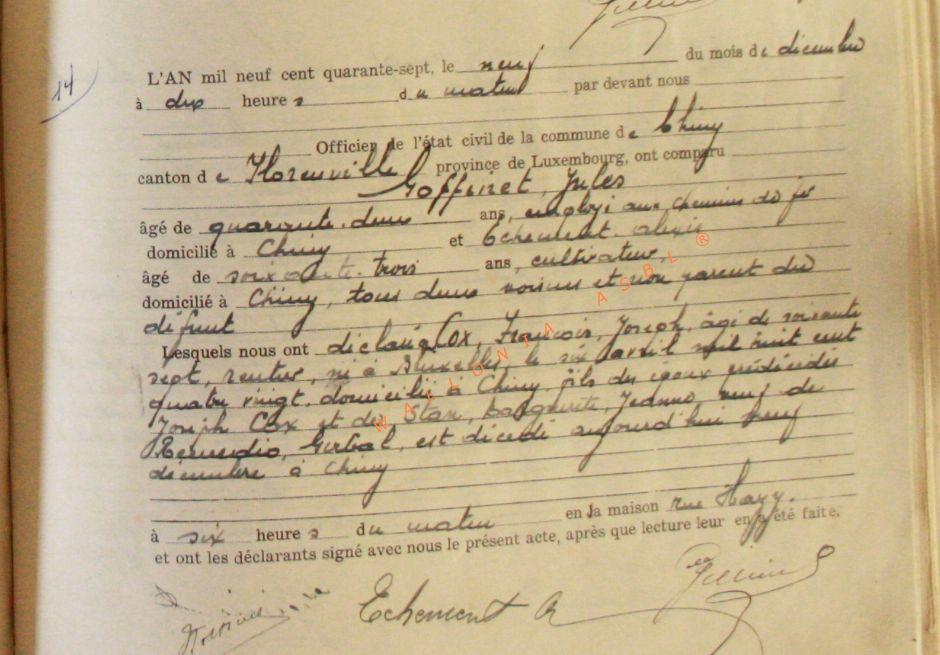 14
L'AN mil neuf cent quarante-sept, le neuf du mois de décembre
à dix heures du matin par devant nous
Officier de l'état civil de la commune de Chiny
canton de Florenville province de Luxembourg, ont comparu
Goffinet, Jules
âgé de quarante-deux ans, employé aux chemins de fer
domicilié à Chiny et Echement, Alexis
âgé de soixante-trois ans, cultivateur
domicilié à Chiny, tous deux voisins et non parent du
défunt
Lesquels nous ont déclaré Cox, François, Joseph, âgé de soixante
sept, rentier, né à Bruxelles, le six avril mil huit cent
quatre vingt, domicilié à Chiny, fils des époux prédécédés
Joseph Cox et de Marguerite, Jeanne, veuf de
est décédé aujourd'hui neuf
décembre à Chiny
à six heures du matin en la maison rue
et ont les déclarants signé avec nous le présent acte, après que lecture leur en a été faite.
Echement A
WALONIA ASBL ®